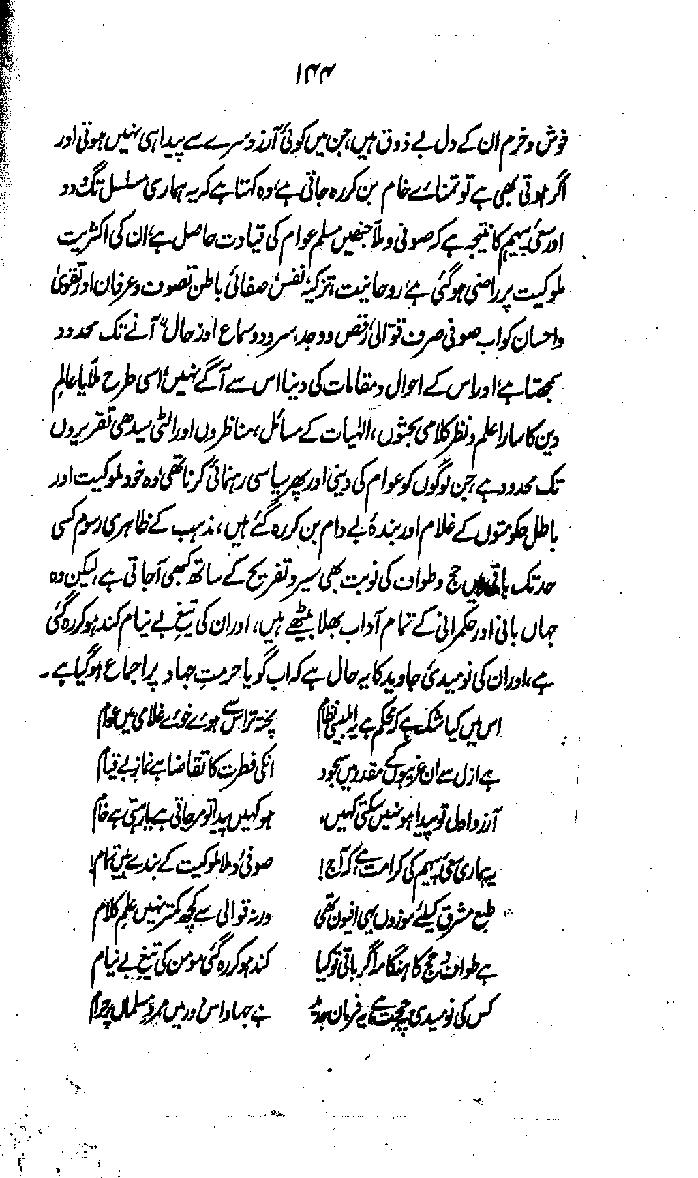 ۱۴۴
خوش و خرم ان کے دل بے ذوق ہیں، جن میں کوئی آرزو سرے سے پیدا ہی نہیں ہوتی اور
اگر ہوتی بھی ہے تو تمنائے خام بن کر رہ جاتی ہے، وہ کہتا ہے کہ یہ ہماری مسلسل تگ و دو
اور سعیٔ پیہم کا نتیجہ ہے کہ صوفی و ملا جنھیں مسلم عوام کی قیادت حاصل ہے، ان کی اکثریت
ملوکیت پر راضی ہوگئی ہے، روحانیت، تزکیۂ نفس، صفائی باطن تصوف و عرفان اور تقویٰ
و احسان کو اب صوفی صرف قوالی، رقص و وجد، سرود و سماع اور "حال" آنے تک محدود
سمجھتا ہے، اور اس کے احوال و مقامات کی دنیا اس سے آگے نہیں، اسی طرح ملا یا عالم
دین کا سارا علم و نظر کلامی بحثوں، الٰہیات کے مسائل، مناظروں اور الٹی سیدھی تقریروں
تک محدود ہے، جن لوگوں کو عوام کی دینی اور پھر سیاسی رہنمائی کرنا تھی، وہ خود ملوکیت اور
باطل حکومتوں کے غلام اور بندۂ بے دام بن کر رہ گئے ہیں، مذہب کے ظاہری رسوم کسی
حد تک باقی ہیں حج و طواف کی نوبت بھی سیر و تفریح کے ساتھ کبھی آجاتی ہے، لیکن وہ
جہاں بانی اور حکمرانی کے تمام آداب بھلا بیٹھے ہیں، اور ان کی تیغ بے نیام کند ہو کر رہ گئی
ہے، اور ان کی نومیدیٔ جاوید کا یہ حال ہے کہ اب گویا حرمت جہاد پر اجماع ہوگیا ہے۔
اس میں کیا شک ہے کہ محکم ہے یہ ابلیسی نظام پختہ تر اس سے ہوئے خوئے غلامی میں عوام
ہے ازل سے ان غریبوں کے مقدر میں سجود انکی فطرت کا تقاضا ہے نماز بے قیام
آرزو اول تو پیدا ہو نہیں سکتی کہیں، ہو کہیں پیدا تو مر جاتی ہے یا رہتی ہے خام
یہ ہماری سعیٔ پیہم کی کرامت ہے کہ آج! صوفی و ملا ملوکیت کے بندے ہیں تمام!
طبع مشرق کیلئے موزوں یہی افیون تھی ورنہ قوالی سے کچھ کمتر نہیں علم کلام
ہے طواف و حج کا ہنگامہ اگر باقی تو کیا کند ہو کر رہ گئی مومن کی تیغ بے نیام
کس کی نومیدی پہ حجت ہے یہ فرمان جدید ہے جہاد اس دور میں مرد مسلماں پر حرام